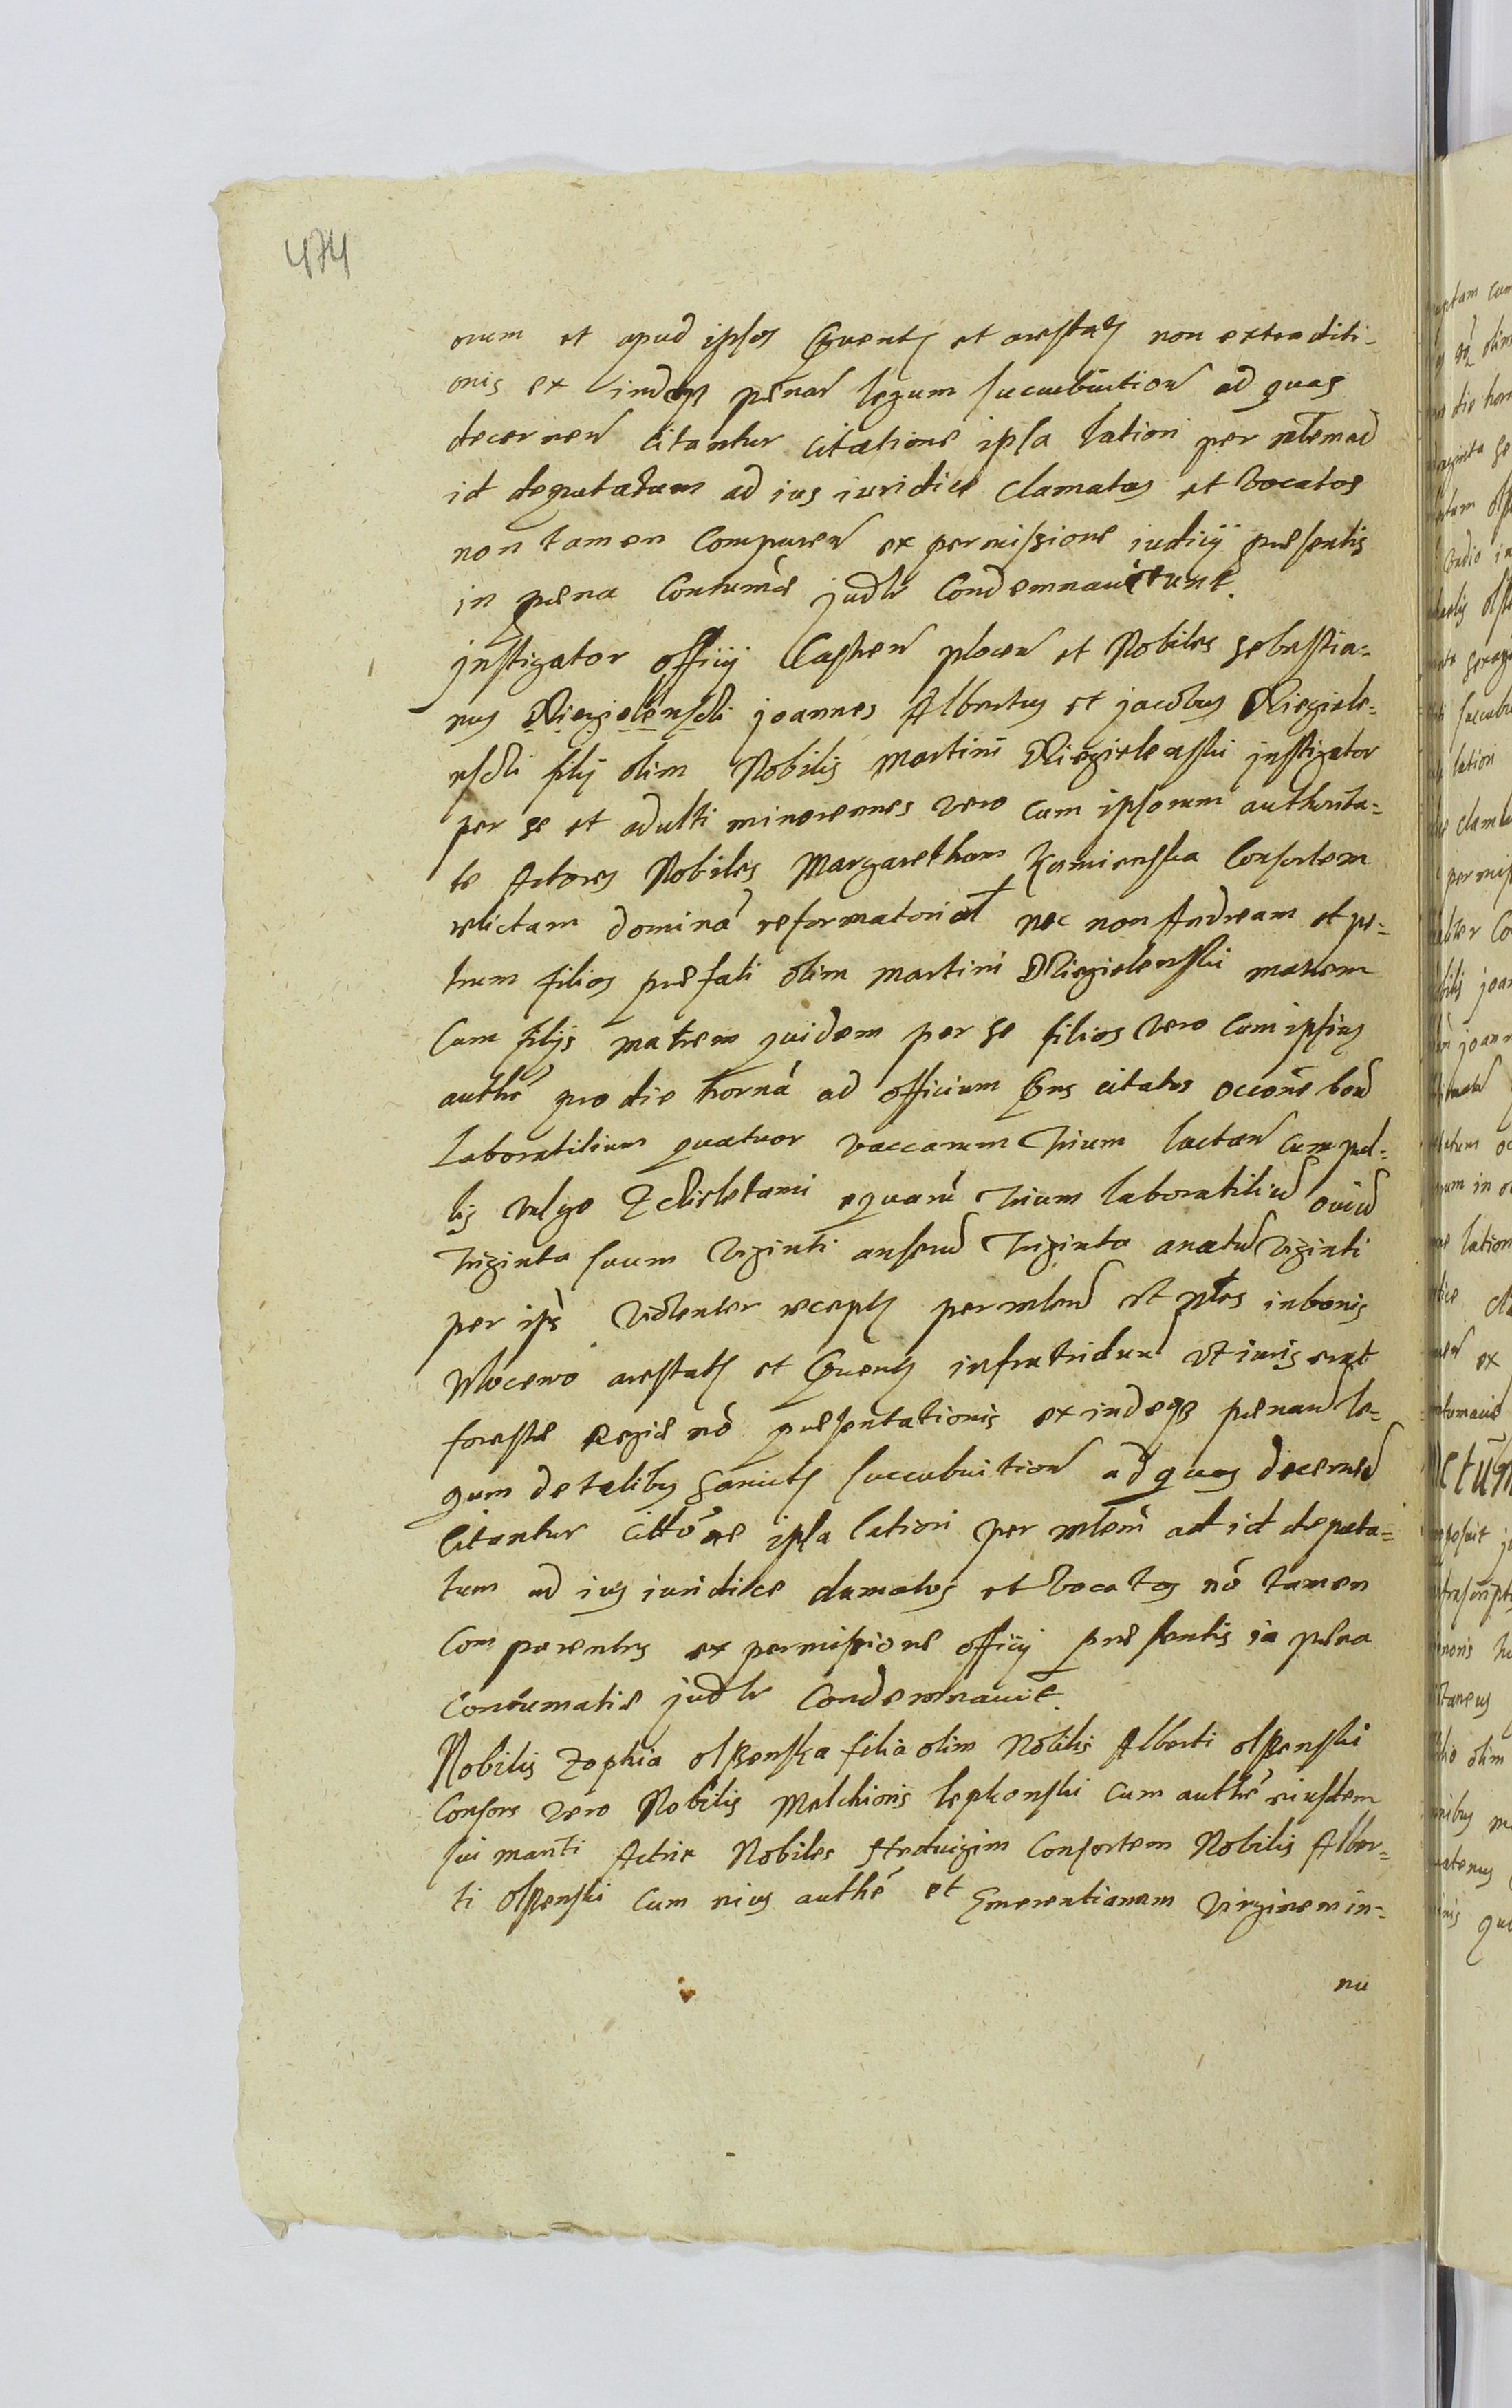 474
orum et apud ipsos Gventꝭ et arestatꝭ non extraditi-
onis ex indeqз penar legum succubuition ad quas
decernen citantur citatione ipsa lationi per mlem ad
id deputatum ad ius iuridice clamatos et vocatos
non tamen Comparen ex permissione iudicij presentis
in pena Contumae judlr Condemnaverunt.
Instigator officij Castren plocen et Nobiles Sebastia-
nus joannes Albertus et jacobus
filij olim Nobilis Martini instigator
per se et adulti minorennes vero cum ipsorum authorita-
te Actores Nobiles Margaretham Kamienska Consortem
relictam dominā reformatoriat nec non Andream et pe-
trum filios prefati olim Martini matrem
Cum filijs matrem quidem per se filios vero cum ipsius
authe pro die hornā ad officium Gns citatos occōne boū
laboratilium quatuor vaccarum trium lactan cum pul-
lis vulgo equarū trium laboratiliū oviū
triginta suum viginti anserū triginta anatū viginti
per ips violenter receptꝭ per mlem et nles in bonis
arestatꝭ et Gventꝭ infra triduum ut iuris erat
foreste Regie nō presentationis exindeqз penarū le-
gum de talibus sancitꝭ succubuition ad quas decernen
citantur cittōne ipsa lationi per mlem ad id deputa-
tum ad ius iuridice clamatos et vocatos nō tamen
Comparentes ex permissione officij presentis in pena
Contumatie judlr Condemnavit.
Nobilis Zophia olszenska filia olim Nobilis Alberti olszenski
Consors vero Nobilis Melchioris cum authe eiusdem
sui mariti Actrix Nobiles Hedvigim Consortem Nobilis Alber-
ti olszenski cum eius authe et Emerentianam virginem in-
nu